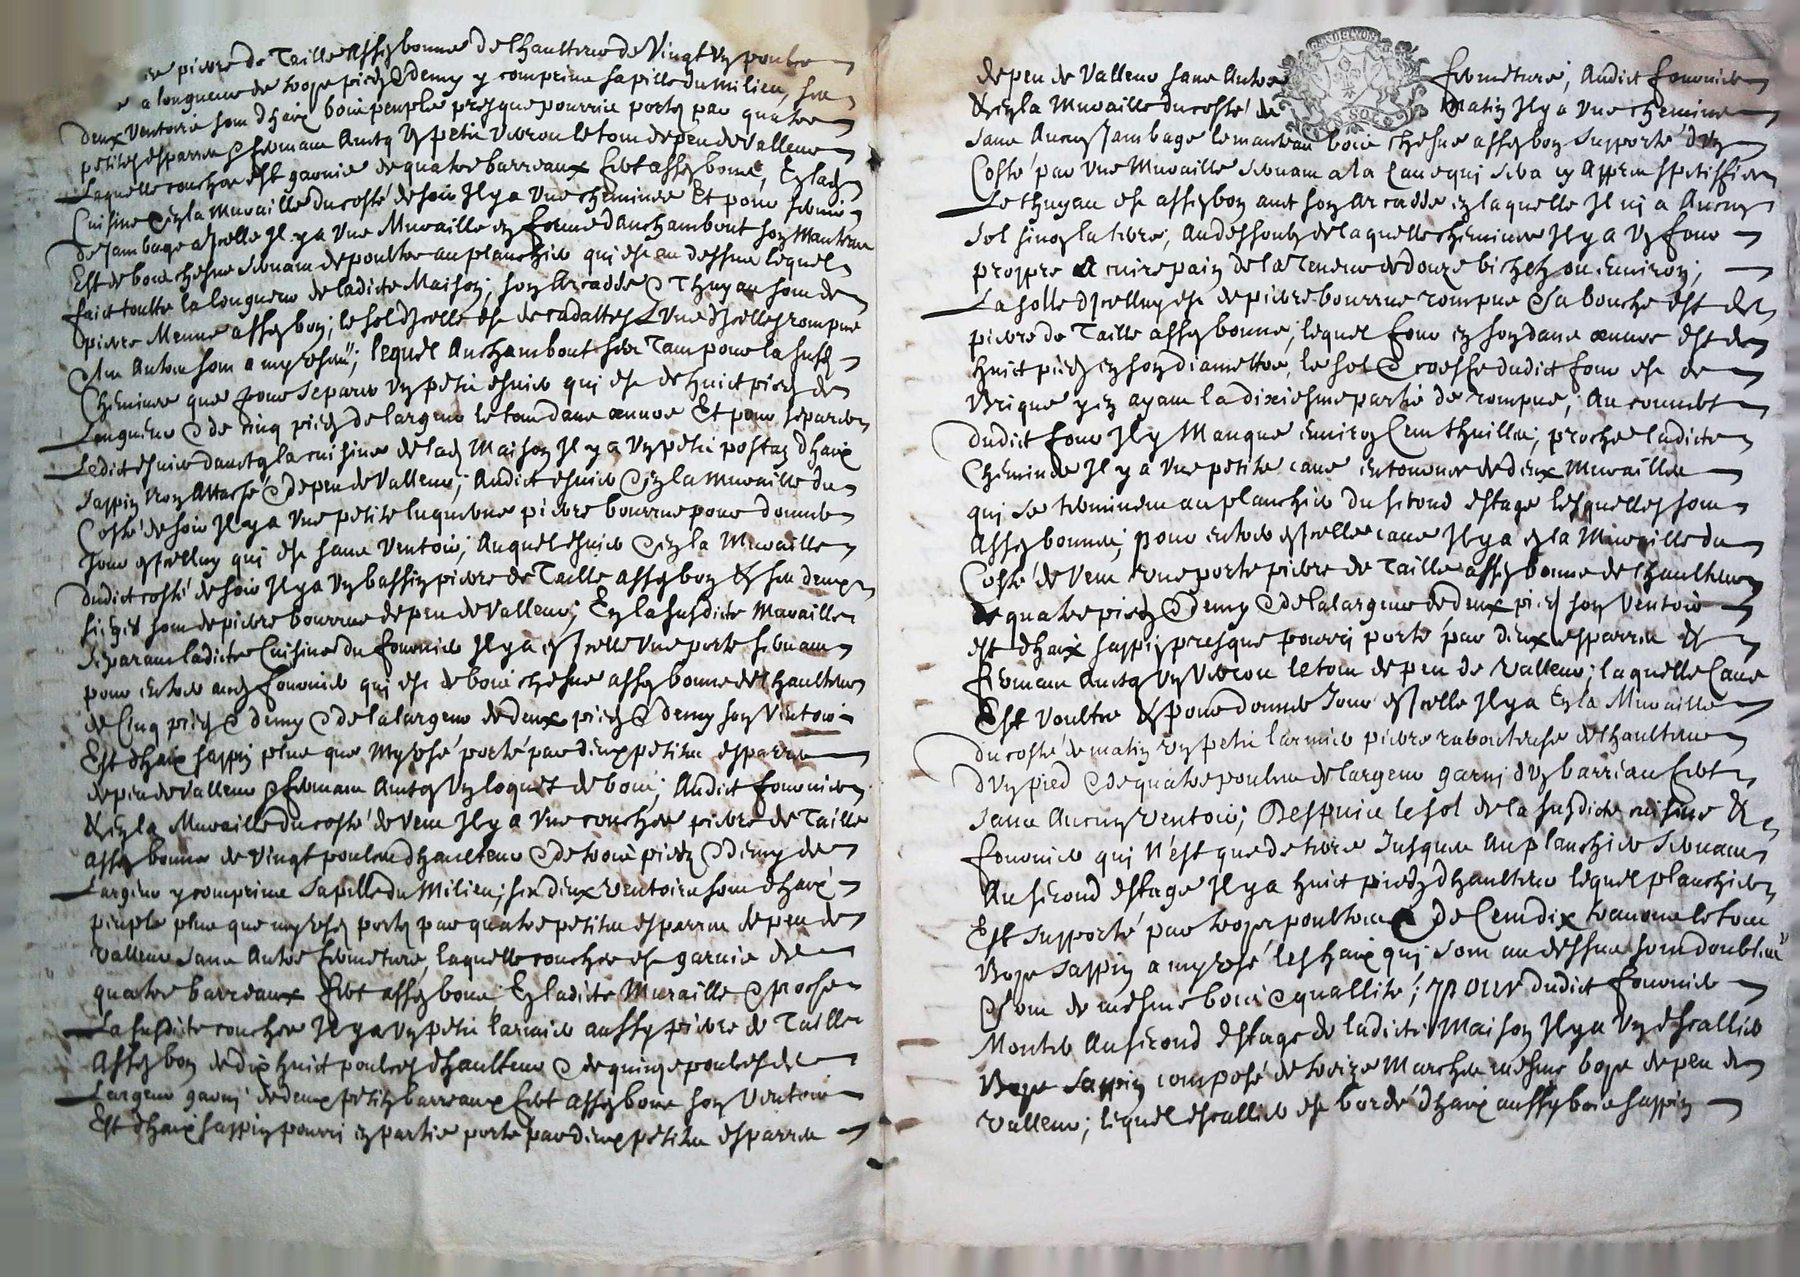 pierre de Taille assez bonne de lhaulteur de Vingt un poulce
longueur de trois piedz & demy y comprins sa pille du milieu, ses
deux Ventoirs sont dhaix bois peuple presque pourris portes par quatre
petites esparres & fermant avecq un petit verrou le tout de peu de valleur
Laquelle est garnie de quatre barreaux fert assez bons, En lad
Cuisine & en la muraille du costé de soir Il y a une cheminee Et pour servir
de Jambage a Icelle Il y a une Muraille en forme danchambout son Manteau
Est de bois chesne servant de poultre au planchier qui est au dessus lequel
faict toutte la longueur de ladicte Maison; son Arcadde & Thuyau sont de
pierre Menue assez bon; le sol dIcelle est de cadattes Lune dIcelles rompue
& les Autres sont a my usées; lequel Anchambout sert Tant pour la susd
Cheminee que pour separer un petit esvier qui est de huict piedz de
Longueur & de cinq piedz de largeur le tout dans œuvre Et pour separer
Ledict esvier davecq la cuisine de lad Maison Il y a un petit postan dhaix
Sappin non Attaché & de peu de Valleur; Audict esvier & en la muraille du
Costé de soir Il y a une petite luquerne pierre bourrue pour donner
Jour a Icelluy qui est sans Ventoir; Auquel esvier & en la Muraille
dudict costé de soir Il y a un bassin pierre de Taille assez bon & ses deux
sieges sont de pierre bourrue de peu de Valleur; En la susdicte Muraille
separant ladicte Cuisine du fournier Il y a en Icelle Une porte servant
pour entrer aud fournier qui est de bois chesne assez bonne de lhaulteur
de Cinq piedz & demy & de la largeur de deux piedz & demy son Ventoir
Est dhaix sappin plus que my usé porté par deux petites esparres
de peu de Valleur & fermant Avecq un loquet de bois; Audict fournier
& en la Muraille du costé de vent Il y a Une pierre de Taille
assez bonne de Vingt poulces dhaulteur & de trois piedz & demy de
Largeur y comprins sa pille du Milieu; ses deux ventoirs sont dhaix
peuple plus que my usez portez par quatre petites esparres de peu de
Valleur sans Autre fermeture, laquelle est garnie de
quatre barreaux fert assez bons En ladicte Muraille & proche
La susdicte Il y a un petit larmier aussy pierre de Taille
Assez bon de dix huict poulces dhaulteur & de quinze poulces de
Largeur garni de deux petitz barreaux fert assez bons son Ventoir
Est dhaix sappin pourri en partie porté par deux petites esparres
de peu de Valleur sans Autre fermeture; Audict fournier
& en la Muraille du costé de matin Il y a une cheminee
sans Aucun Jambage le manteau bois chesne assez bon supporté dun
Costé par une Muraille servant a la Cave qui sera cy Appres speciffiee
Le thuyau est assez bon avec son Arcadde en laquelle Il ni a Aucun
sol sinon la terre, Au dessoubz de laquelle cheminee Il y a un four
propre A cuire pain de la Teneur de douze bichetz ou environ;
La solle dIcelluy est de pierre bourrue rompue & sa bouche est de
pierre de Taille assez bonne; lequel four en son dans œuvre est de
huict piedz en son diamettre, le sol & coeffe dudict four est de
Brique y en ayant la dixiesme partie de rompue; Au couvert
dudict four Il y Manque environ Cent thuilles; proche ladicte
Cheminee Il y a Une petite cave entouree de deux Murailles
qui se terminent au planchier du second estage lesquelles sont
Assez bonnes; pour entrer en Icelle cave Il y a en la Muraille du
Costé de Vent une porte pierre de Taille assez bonne de lhaulteur
de quatre piedz & demy & de la largeur de deux piedz son Ventoir
est dhaix sappin presque pourri porté par deux esparres &
fermant Avecq un Verrou le tout de peu de valleur; laquelle Cave
Est voultee & pour donner Jour a Icelle Il y a En la Muraille
du costé de matin un petit larmier pierre de lhaulteur
dun pied & de quatre poulces de largeur garni dun barreau fert
sans Aucun ventoir; Despuis le sol de la susdicte cuisine &
fournier qui n'est que de terre Jusques Au planchier servant
Au second estage Il y a huict piedz dhaulteur lequel planchier
Est supporté par trois poultres & de Cent dix travons le tout
Bois sappin a my usé les haix qui sont au dessus sont doubles
& sont de mesme bois & quallité; pour dudict fournier
Monter Au second estage de ladicte Maison Il y a un escallier
Bois sappin composé de treize Marches mesme bois de peu de
valleur; lequel escallier est bordé dhaix aussy bois sappin